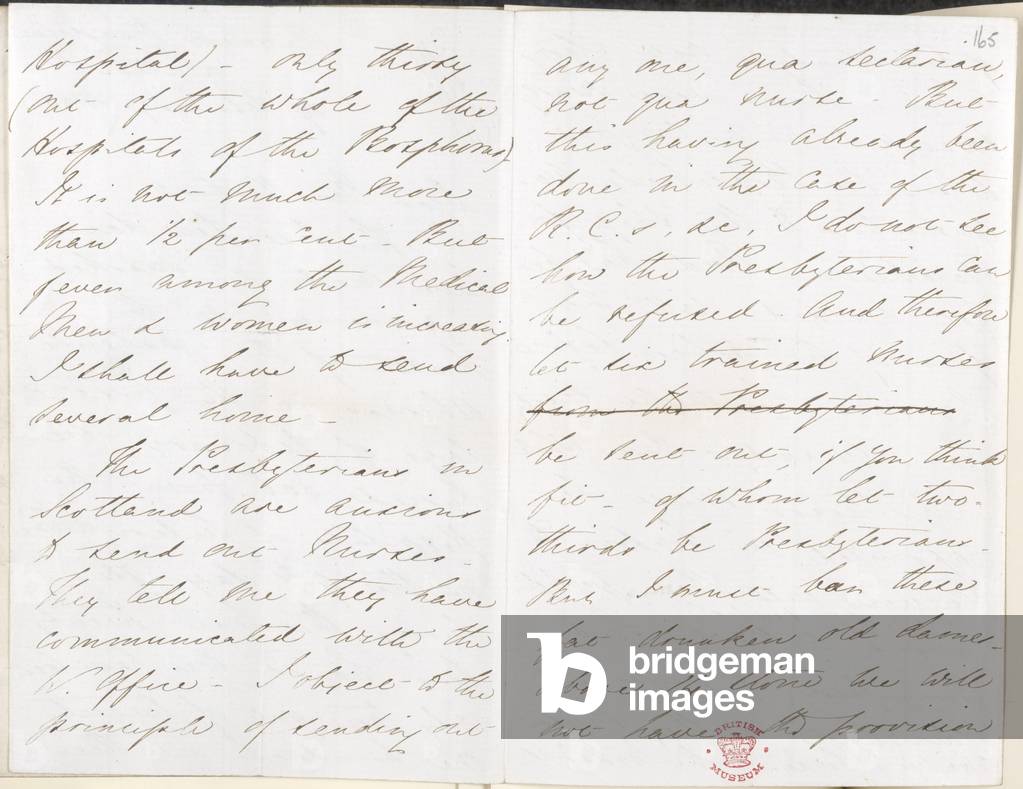 Hospital) - only thirty
(out of the whole of the
Hospitals of the Bosphorus)
It is not much more
than 1/2 per cent - But
fever among the Medical
Men & women is increasing.
I shall have to send
several home -
The Presbyterians in
Scotland are anxious
to send out Nurses.
They tell me they have
communicated with the
W. Office - I object to the
principle of sending out
165
any one, qua sectarian,
not qua nurse - But
this having already been
done in the case of the
R.C.s, &c, I do not see
how the Presbyterians can
be refused. And therefore
let six trained Nurses
from the Presbyterians
be sent out, if you think
fit - of whom let two-
thirds be Presbyterians -
But I must bar these
fat drunken old dames -
14 stone we will
not have - the provision
bridgeman
images
BRITISH
MUSEUM